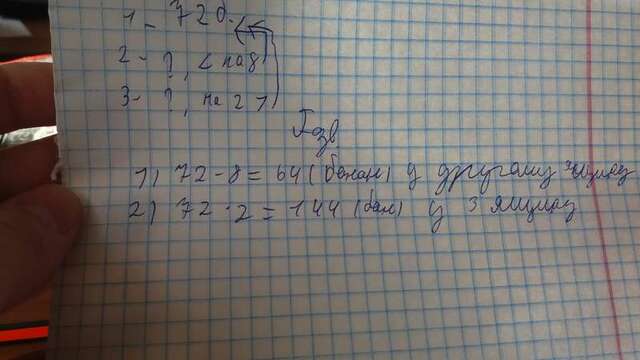 1 - 72 б.
2 - ?, < на 8
3 - ?, на 2 >
Розв.
1) 72 - 8 = 64 (банан) у другому ящику
2) 72 · 2 = 144 (бан) у 3 ящику